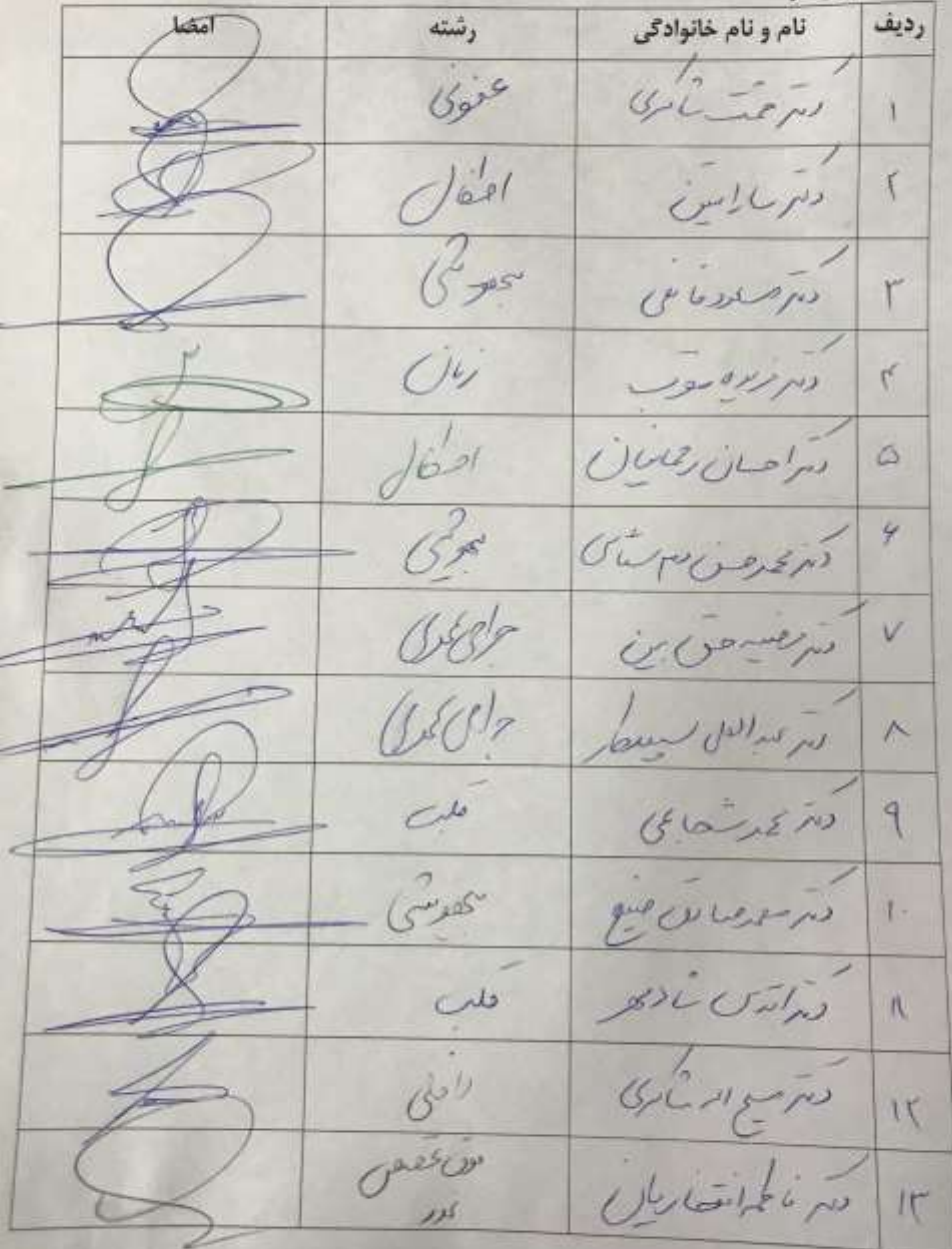 ردیف نام و نام خانوادگی رشته امضا
۱ دکتر حجت شاکری عفونی
۲ دکتر سارا متین اطفال
۳ دکتر مسعود قانعی بیهوشی
۴ دکتر فریده زنان
۵ دکتر احسان رحمانیان اطفال
۶ دکتر محمدحسن بیهوشی
۷ دکتر مرضیه حق بین جراحی عمومی
۸ دکتر عبدالعلی سپیدکار جراحی عمومی
۹ دکتر محمد شجاعی قلب
۱۰ دکتر محمدصادق صنیع بیهوشی
۱۱ دکتر اقدس شادمهر قلب
۱۲ دکتر مسیح اله شاکری داخلی
۱۳ دکتر فاطمه افتخاریان فوق تخصص
غدد